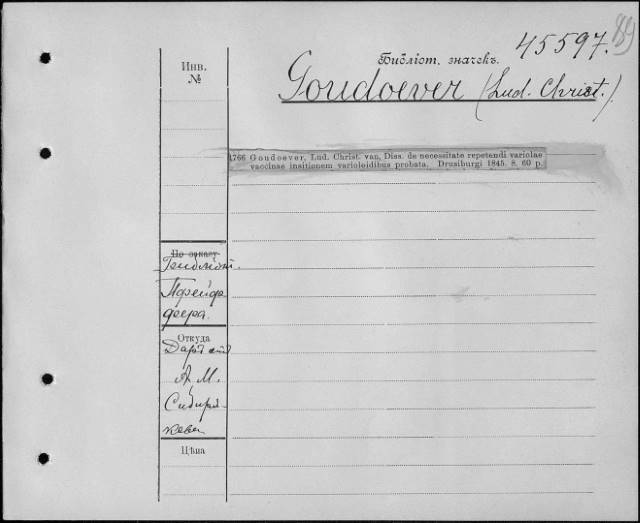 89
45597.
Библіот. значекъ.
Инв.
№
Goudoever (Lud. Christ.)
1766 Goudoever, Lud. Christ. van, Diss. de necessitate repetendi variolae
vaccinae insitionem varioloidibus probata. Drusiburgi 1845. 8. 60 p.
По заказу
Перейде
Откуда
Даръ
А. М.
Сибиря-
кова
Цѣна